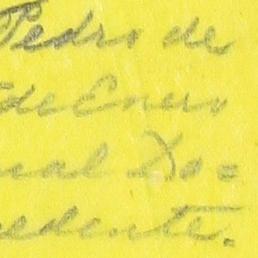 Pedro de
de Enero
ual Do=
edente.